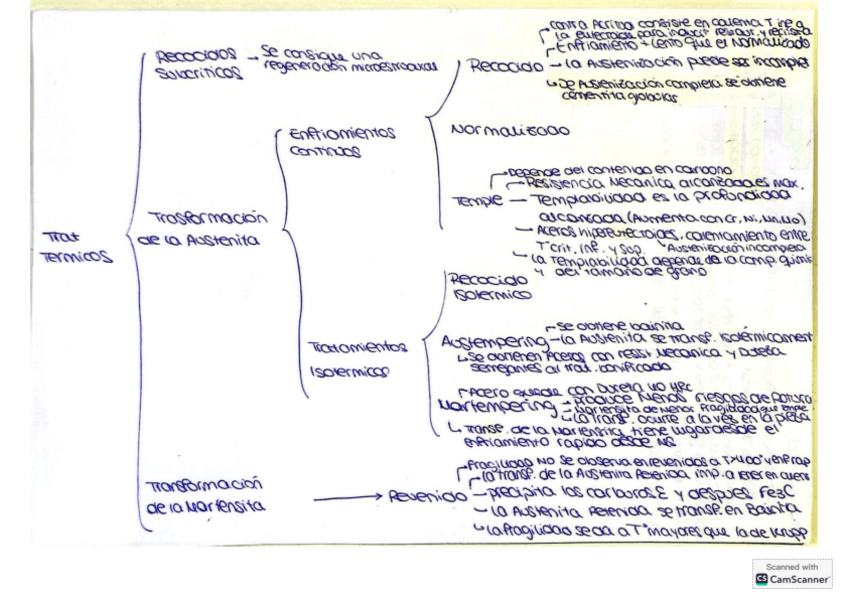 Contra Acritud consiste en calentar T inf a
la eutectoide para inducir restaur. y recrista
Enfriamiento + lento que el Normalizado
Recocidos
Subcríticos
Se consigue una
regeneración microestructural
Recocido
la Austenización puede ser incomplet
De Austenización completa se obtiene
cementita globular
Enfriamientos
Continuos
Normalizado
Depende del contenido en carbono
Resistencia Mecanica alcanzada es max.
Temple
Templabilidad es la profundidad
alcanzada (Aumenta con Cr, Ni, Mn, Mo)
Aceros hipereutectoides, calentamiento entre
Tª crit. inf. y sup. Austenización incompleta
la Templabilidad depende de la comp. quími
y del tamaño de grano
Trasformación
de la Austenita
Trat
Termicos
Recocido
Isotermico
Tratamientos
Isotermicos
Se obtiene bainita
Austempering
la Austenita se transf. isotérmicament
Se obtienen Aceros con resist Mecanica y Dureza
semejantes al trat. bonificado
Acero quede con Dureza 40 HRC
produce Menos riesgos de Rotura
Martempering
Martensita de Menor Fragilidad que
la transf. ocurre a la vez en la pieza
Transf. de la Martensita tiene lugar desde el
enfriamiento rapido desde Ms
Transformación
de la Martensita
Revenido
Fragilidad NO se observa en revenidos a T>400º y enf rap
la transf. de la Austenita Retenida imp. a tener en cuenta
precipita los carburos ε y despues Fe3C
la Austenita Retenida se transf. en Bainita
la Fragilidad se da a Tª mayores que la de Krupp
Scanned with
CS CamScanner